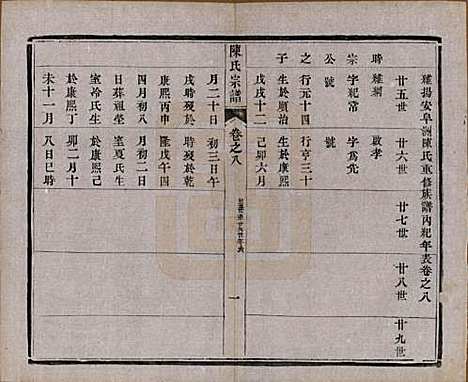 維揚安阜洲陳氏重修族譜內紀年表卷之八
廿五世 廿六世 廿七世 廿八世 廿九世
時維綱 啟孝
宗字紀常 字爲先
公號 號
之行元十四 行亨三十
子生於順治 生於康熙
戊戌十二 己卯六月
陳氏宗譜 卷之八 一
月二十日 初三日午
戌時歿於 時歿於乾
康熙丙申 隆戊午四
四月初八 月初八日
日葬祖塋 室夏氏生
室冷氏生 於康熙己
於康熙丁 卯二月十
未十一月 八日巳時